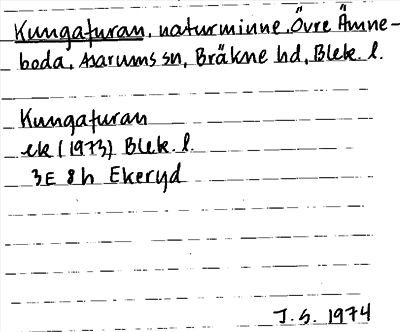 Kungafuran, naturminne, Övre Ämne-
boda, Asarums sn, Bräkne hd, Blek. l.
Kungafuran
ek (1973) Blek. l.
3E 8h Ekeryd
J.S. 1974